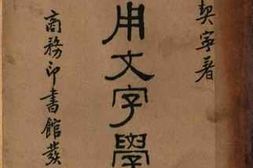 契寧著
用文字學
商務印書館發